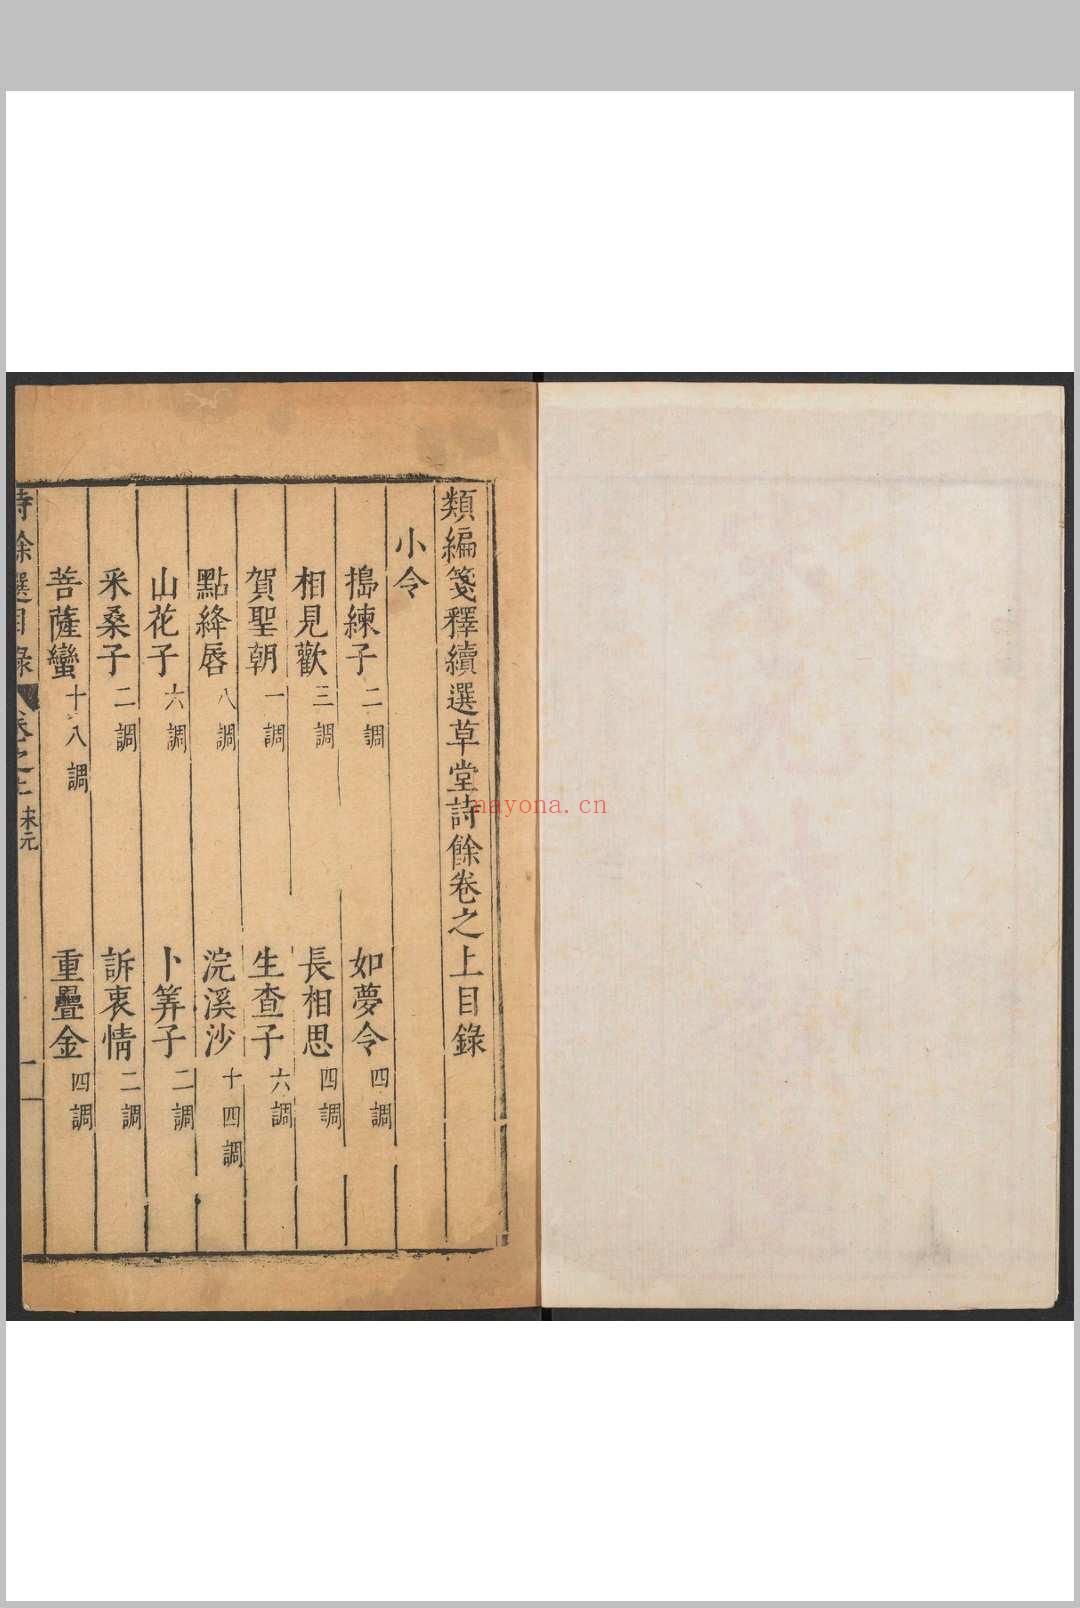 類編箋釋續選草堂詩餘卷之上目錄
小令
搗練子二調 如夢令四調
相見歡三調 長相思四調
賀聖朝一調 生查子六調
點絳唇八調 浣溪沙十四調
山花子六調 卜筭子二調
采桑子二調 訴衷情二調
菩薩蠻十八調 重疊金四調
詩餘選目錄 卷之上 一
nayona.cn